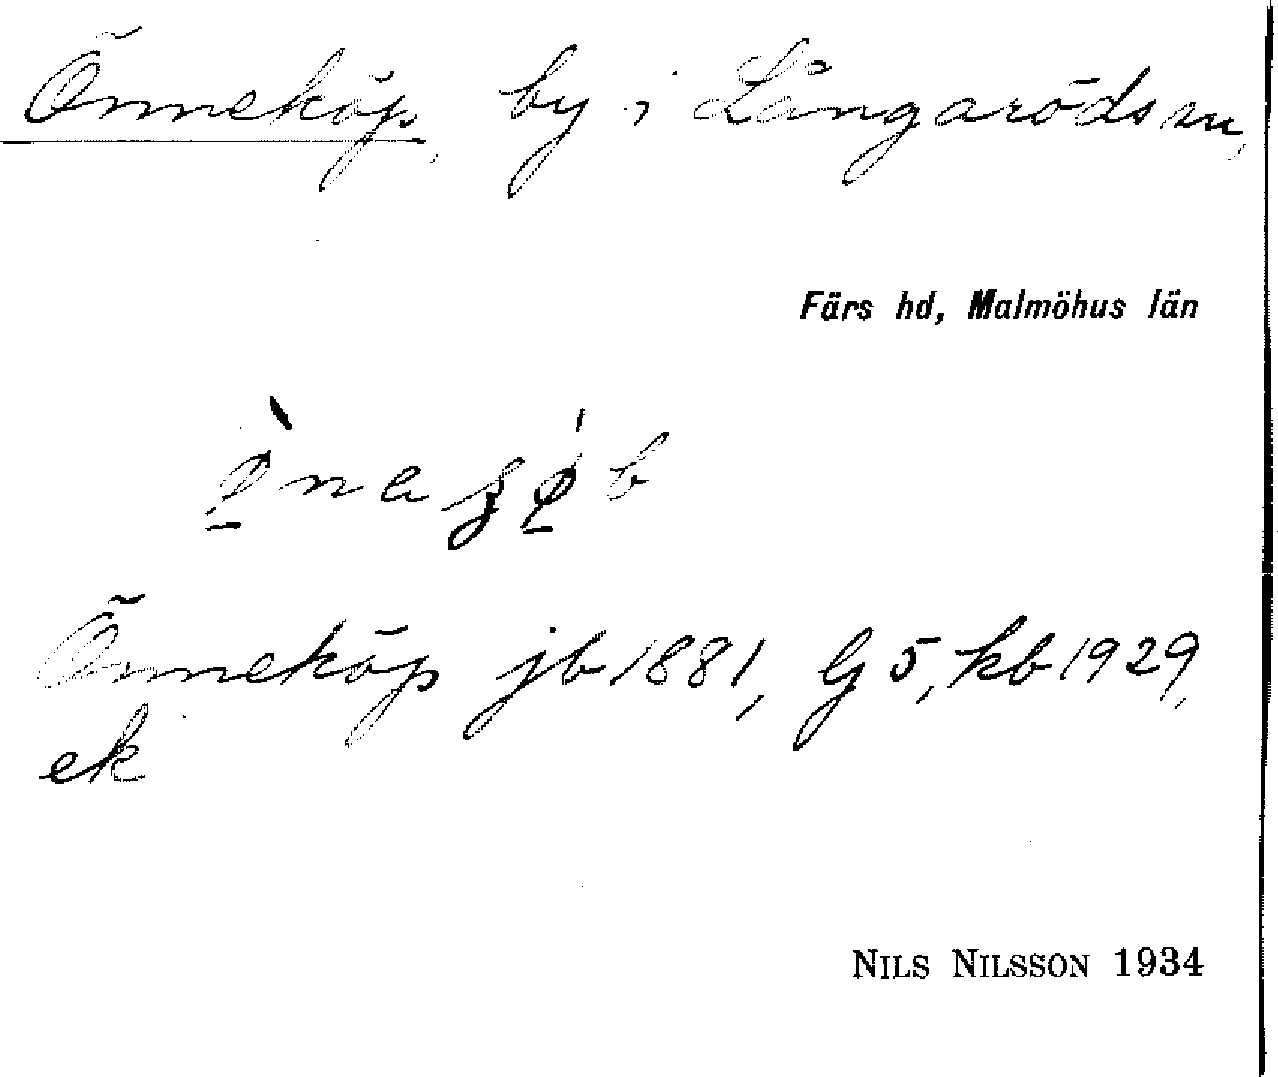 Önneköp, by i Långaröds sn,
Färs hd, Malmöhus län
Önneköp jb 1881, G 5, kb 1929,
ek
NILS NILSSON 1934